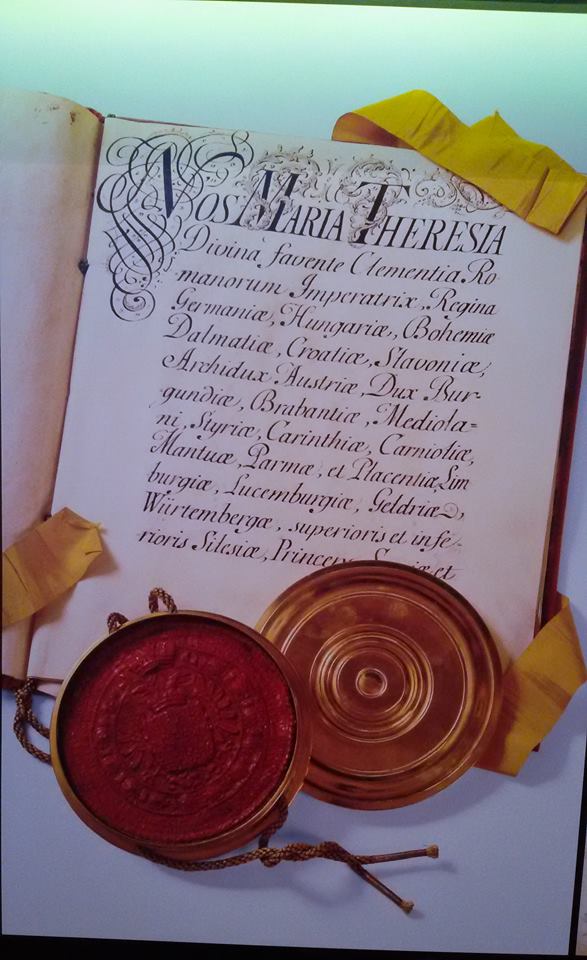 NOS MARIA THERESIA
Divinâ favente Clementia Ro-
manorum Imperatrix, Regina
Germaniæ, Hungariæ, Bohemiæ
Dalmatiæ, Croatiæ, Slavoniæ,
Archidux Austriæ, Dux Bur-
gundiæ, Brabantiæ, Mediola=
ni, Styriæ, Carinthiæ, Carnioliæ,
Mantuæ, Parmæ, et Placentiæ, Lim
burgiæ, Lucemburgiæ, Geldriæ,
Würtembergæ, superioris et infe-
rioris Silesiæ, et